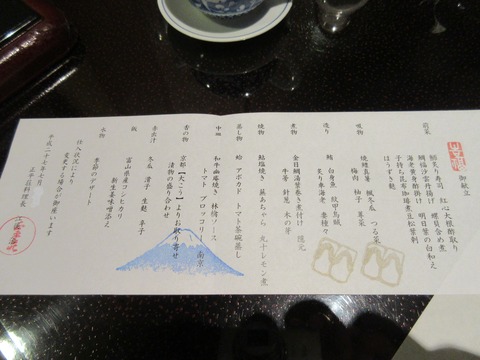 御献立
前菜
紅心大根酢取り
鯛福沙雲丹揚げ
海老黄身酢掛け
明日葉の白和え
子持ち昆布
ほうずき麩
吸物
焼鱧真薯
楓冬瓜
つる菜
梅肉
柚子
蓴菜
造り
鮪
白身魚
紋甲烏賊
妻種々
煮物
金目鯛湯葉巻き煮付け
隠元
牛蒡
針葱
木の芽
焼物
鮎塩焼き
蕪あちゃら
丸十レモン煮
蒸し物
蛤
アボカド
トマト茶碗蒸し
中皿
和牛幽庵焼き
林檎ソース
トマト
ブロッコリー
南京
香の物
京都【大こう】よりお取り寄せ
漬物の盛り合わせ
赤出汁
冬瓜
滑子
生麩
芽子
飯
富山県産コシヒカリ
新生姜味噌添え
水物
季節のデザート
仕入状況により
変更する場合が御座います
平成二十七年七月
正平荘料理長